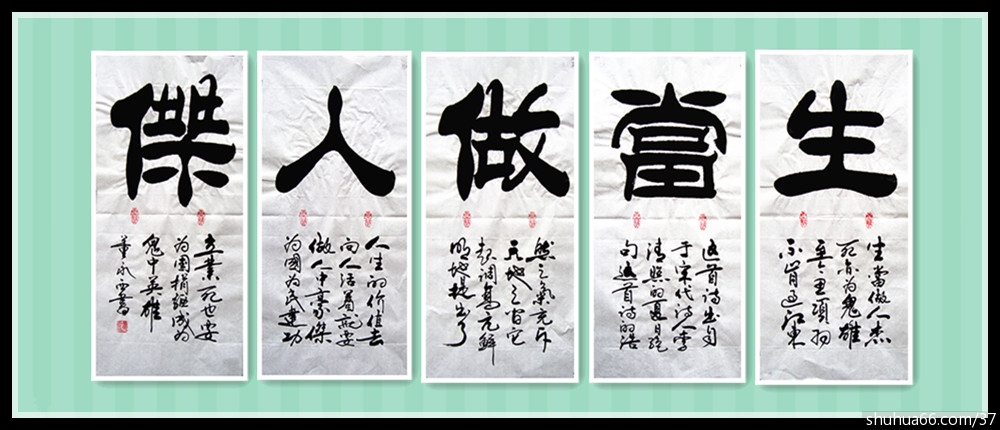 生
生當做人杰
死亦为鬼雄
至今思項羽
不肯过江東
當
这首诗出自
于宋代诗人李
清照的夏日绝
句这首诗的浩
做
然之氣充斥
天地之间它
起调高亢鲜
明地提出了
人
人生的价值去
向人活着就要
做人中豪傑
为國为民建功
傑
立業死也要
为國捐躯成为
鬼中英雄
shuhua66.com/37